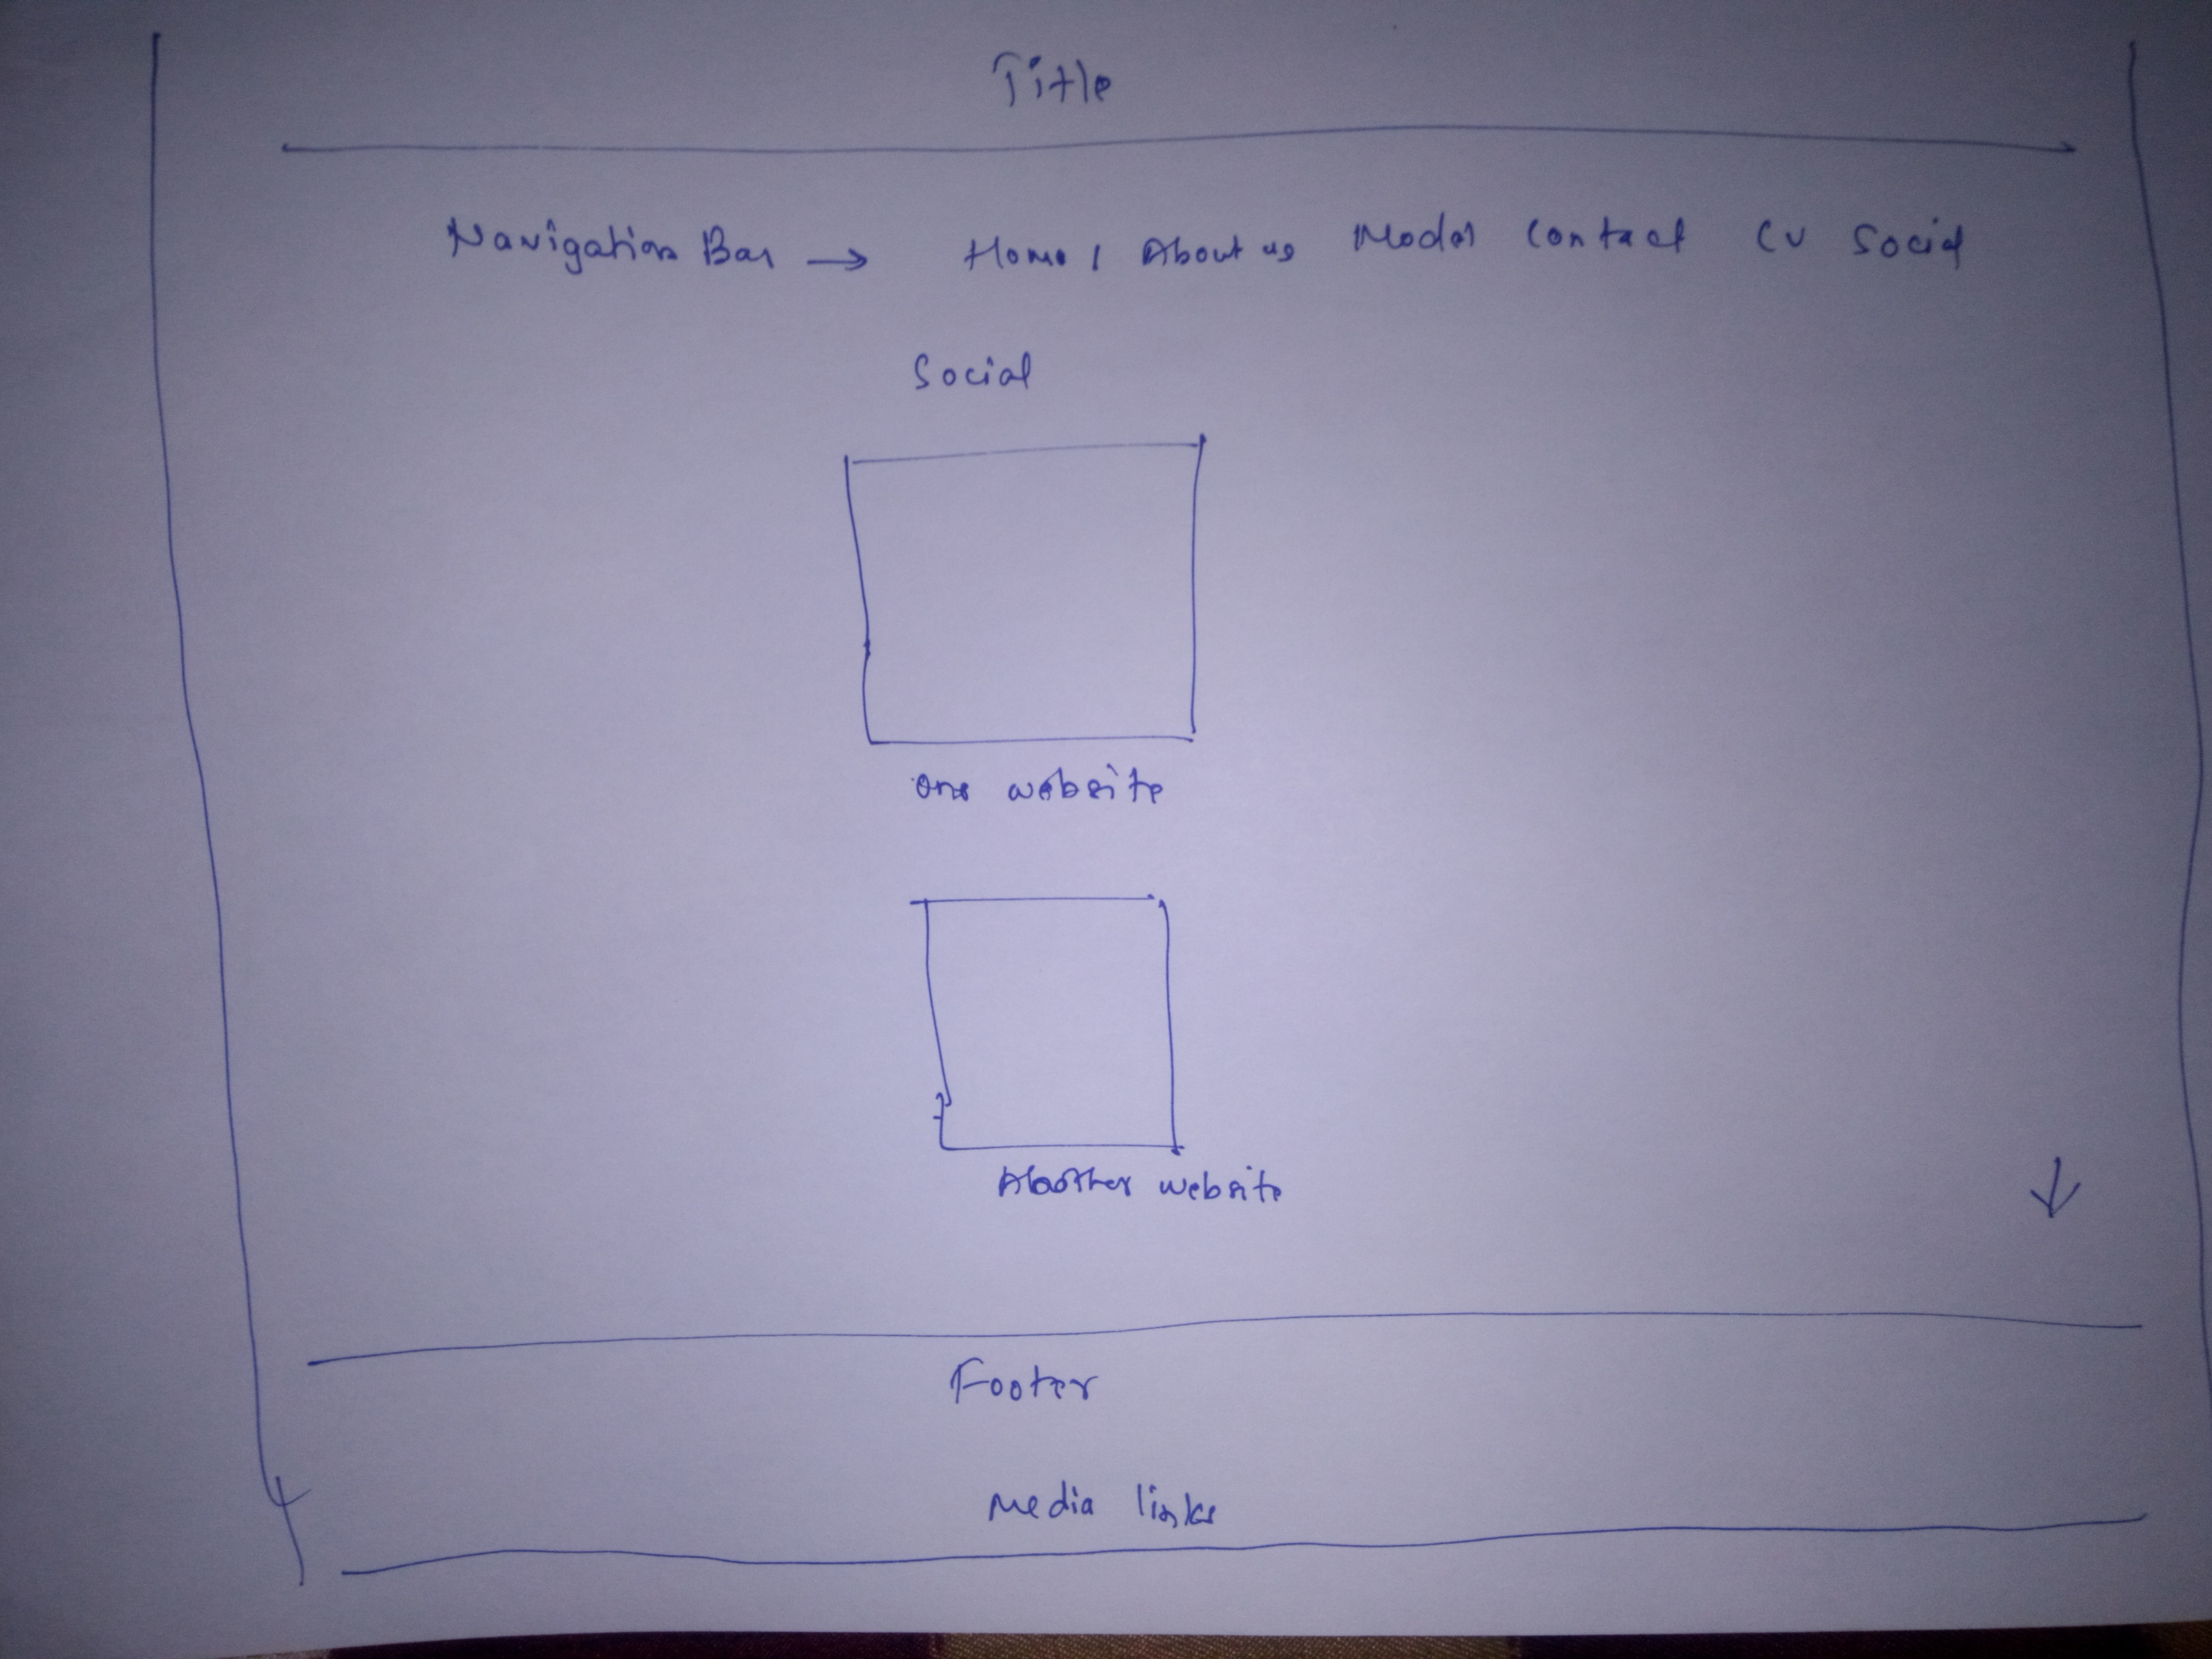 Title
Navigation Bar → Home | About us Modal Contact CV Social
Social
one website
Another website
Footer
Media links